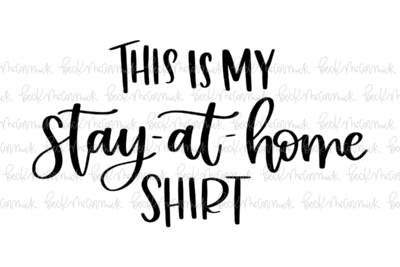 THIS IS MY
stay-at-home
SHIRT